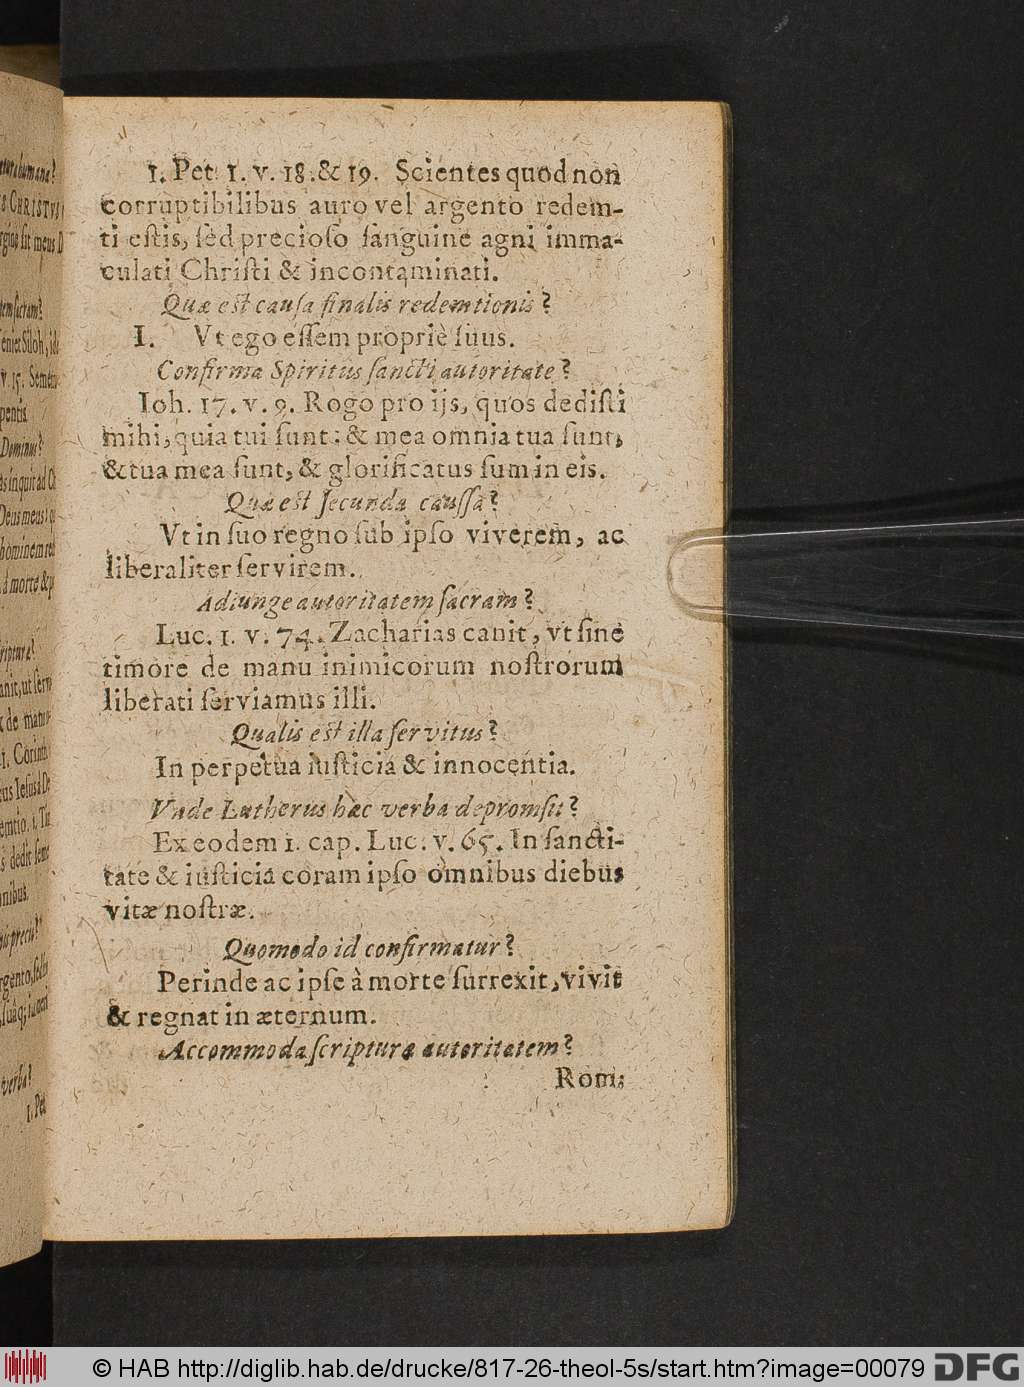 1. Pet. 1. v. 18. & 19. Scientes quod non
corruptibilibus auro vel argento redem-
ti estis, sed precioso sanguine agni imma-
culati Christi & incontaminati.
Quæ est causa finalis redemtionis?
I. Vt ego essem propriè suus.
Confirma Spiritus sancti autoritate?
Ioh. 17. v. 9. Rogo pro ijs, quos dedisti
mihi, quia tui sunt: & mea omnia tua sunt,
& tua mea sunt, & glorificatus sum in eis.
Quæ est secunda caussa?
Vt in suo regno sub ipso viverem, ac
liberaliter servirem.
Adiunge autoritatem sacram?
Luc. 1. v. 74. Zacharias canit, vt sine
timore de manu inimicorum nostrorum
liberati serviamus illi.
Qualis est illa servitus?
In perpetua iusticia & innocentia.
Vnde Lutherus hæc verba depromsit?
Ex eodem 1. cap. Luc. v. 65. In sancti-
tate & iusticia coram ipso omnibus diebus
vitæ nostræ.
Quomodo id confirmatur?
Perinde ac ipse à morte surrexit, vivit
& regnat in æternum.
Accommoda scripturæ autoritatem?
Rom:
© HAB http://diglib.hab.de/drucke/817-26-theol-5s/start.htm?image=00079
DFG